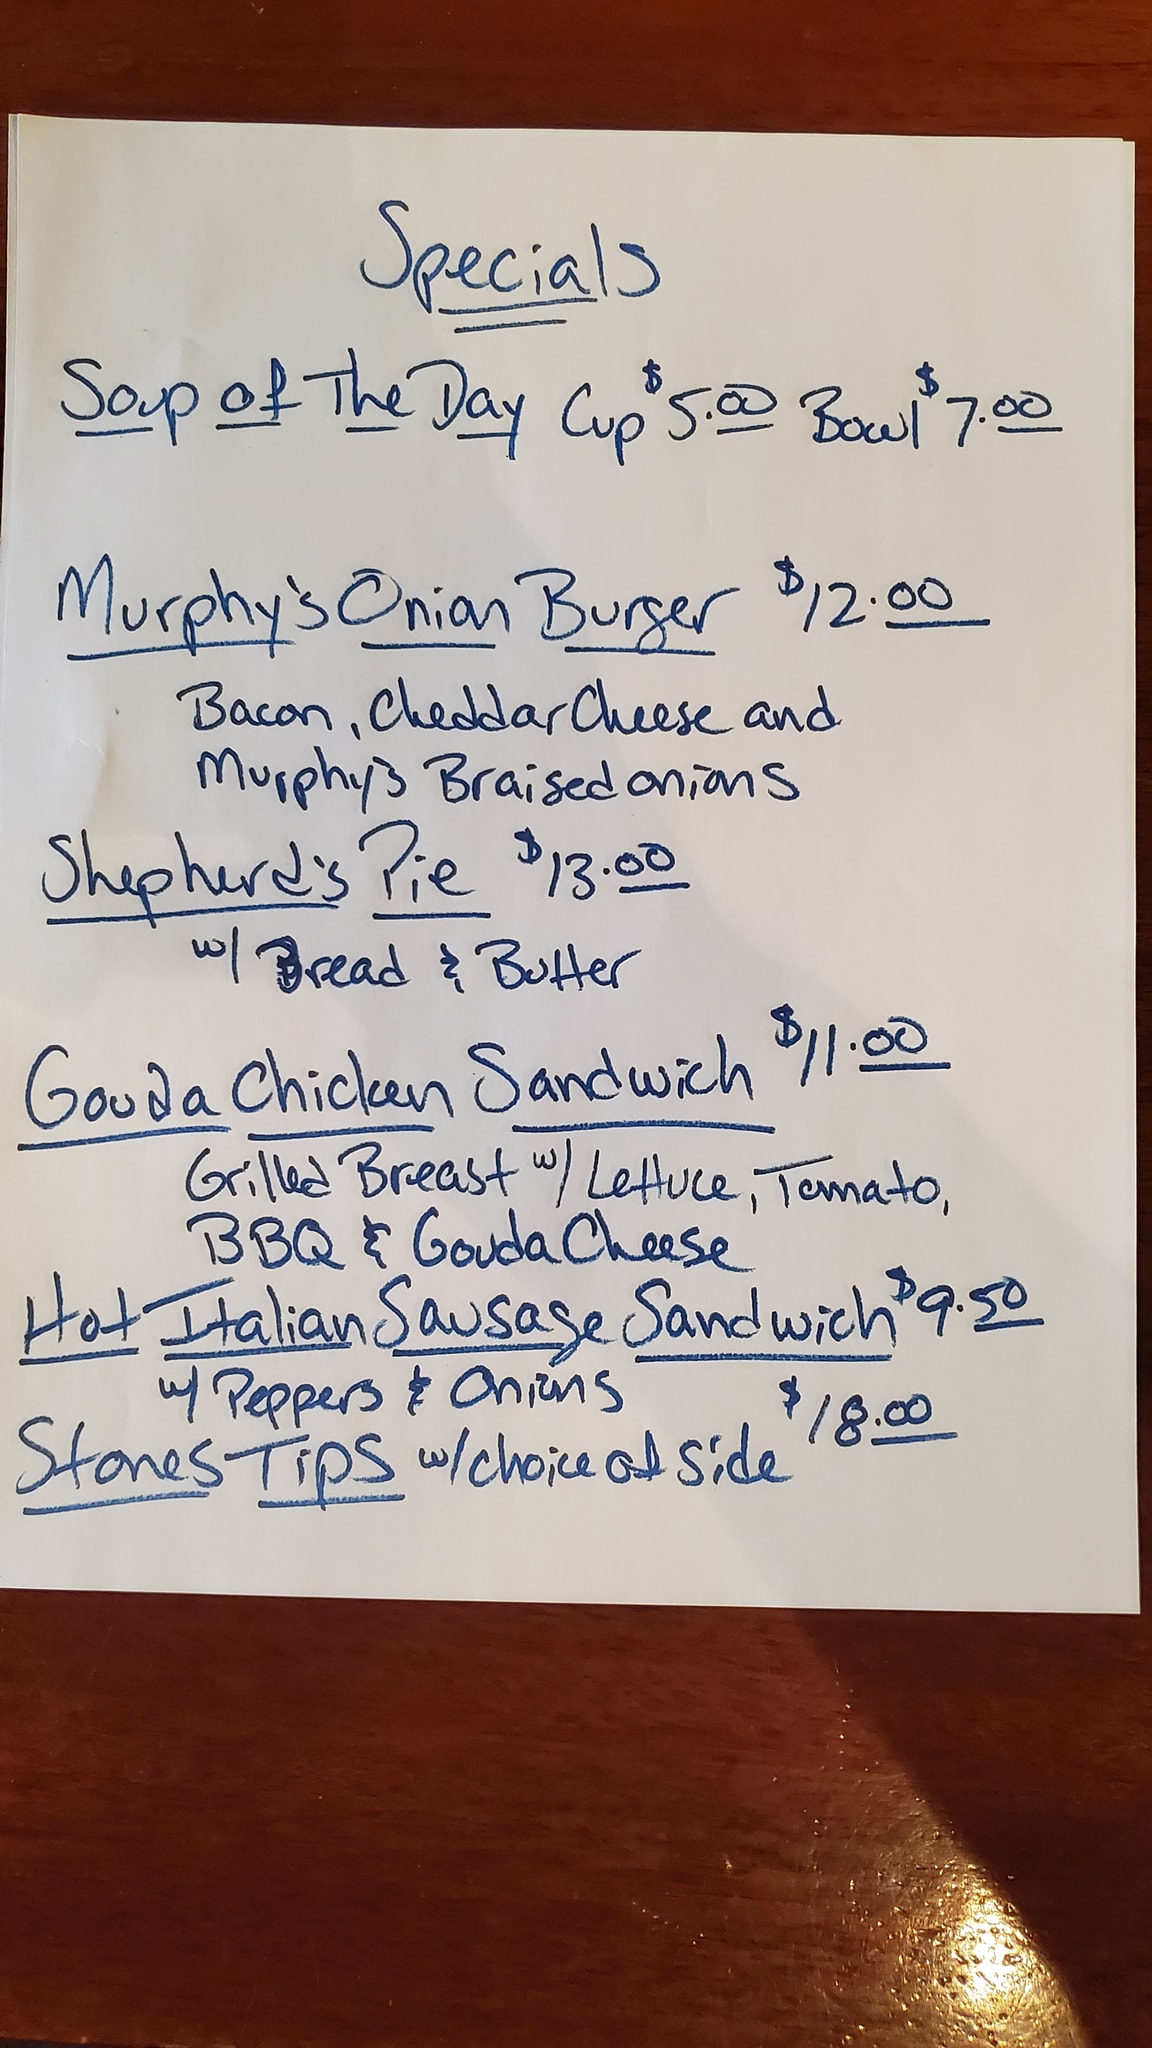 Specials
Soup of The Day Cup $5.00 Bowl $7.00
Murphy's Onion Burger $12.00
Bacon, Cheddar Cheese and
Murphy's Braised onions
Shepherd's Pie $13.00
w/ Bread & Butter
Gouda Chicken Sandwich $11.00
Grilled Breast w/ Lettuce, Tomato,
BBQ & Gouda Cheese
Hot Italian Sausage Sandwich $9.50
w/ Peppers & Onions
Stones Tips w/choice of side $18.00